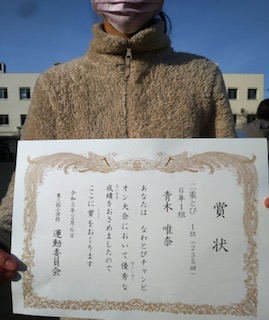 賞状
二重とび 1位(235回)
6年1組
青木 唯奈
あなたは なわとびチャンピ
オン大会において優秀な
成績をおさめましたので
ここに賞をおくります
令和5年2月6日
小学校
運動委員会